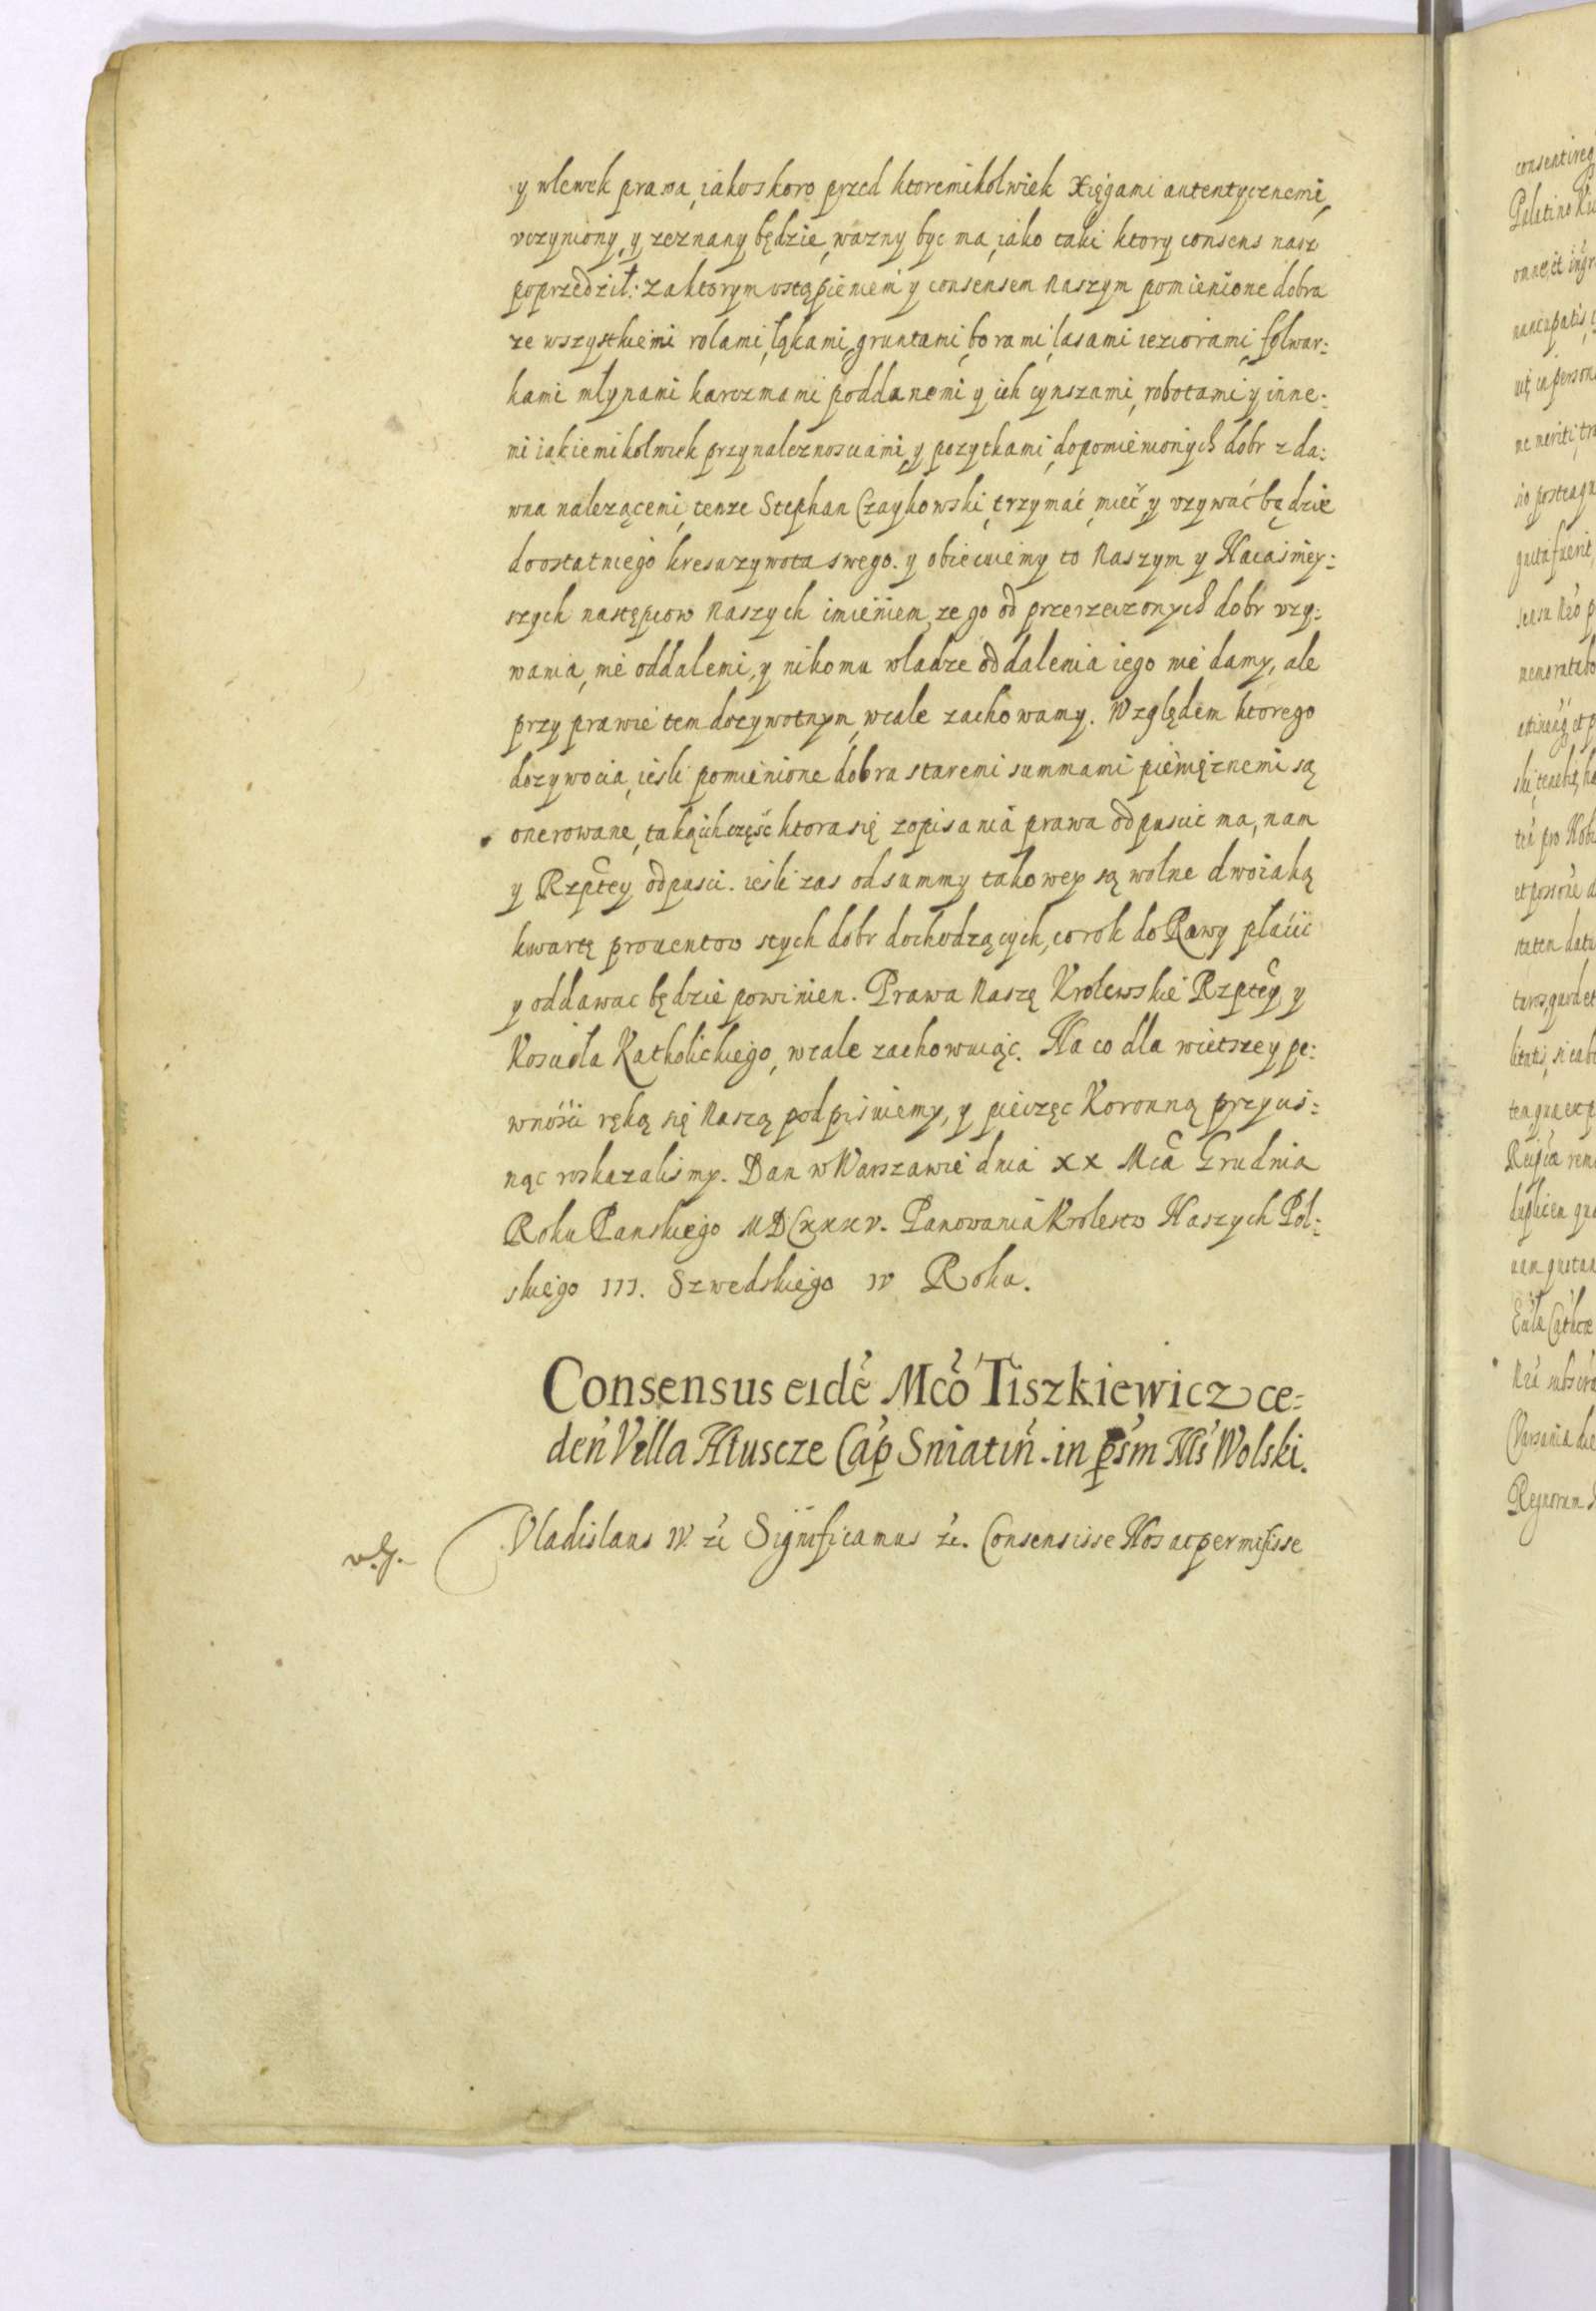 y wlewek prawa, iakoskoro przed ktoremikolwiek Xięgami autentycznemi,
vczyniony, y zeznany będzie, wazny byc ma, iako taki ktory consens nasz
poprzedził: za ktorym vstąpieniem y consensem Naszym pomienione dobra
ze wszystkiemi rolami, łąkami, gruntami, borami, lasami ieziorami, folwar:
kami młynami karczmami poddanemi y ich cynszami, robotami y inne:
mi iakiemikolwiek przynaleznosciami, y pozytkami, do pomienionych dobr z da:
wna nalezącemi, tenze Stephan Czaykowski, trzymać, mieć y vzywać będzie
do ostatniego kresu zywota swego. y obiecuiemy to Naszym y Naiaśniey:
szych następcow Naszych imieniem, ze go od przerzeczonych dobr vzy:
wania, nie oddalemi, y nikomu wladze oddalenia iego nie damy, ale
przy prawie tem dozywotnym, wcale zachowamy. Względem ktorego
dozywocia, iesli pomienione dobra staremi summami pieniężnemi są
onerowane, taką ich część ktora się z opisania prawa odpuscic ma, nam
y Rzptey odpusci. iesli zas od summy takowey są wolne dwoiaką
kwartę prouentow s tych dobr dochodzących, co rok do Rawy płacic
y oddawac będzie powinien. Prawa Naszę Krolewskie Rzptey, y
Kosciola Katholickiego, wcale zachowuiąc. Na co dla wietszey pe:
wności ręką się Naszą podpisuiemy, y pieczęc Koronną przycis:
nąc roskazalismy. Dan w Warszawie dnia XX Mca Grudnia
Roku Panskiego MDCXXXV. Panowania Krolestw Naszych Pol:
skiego III. Szwedskiego IV Roku.
Consensus eidē Mco Tiszkiewicz ce:
den Villa Hłuscze Cap Sniatin. in psm Nlis Wolski.
v.g. Vladislaus IV. &c Significamus &c. Consensisse Nos ac permisisse